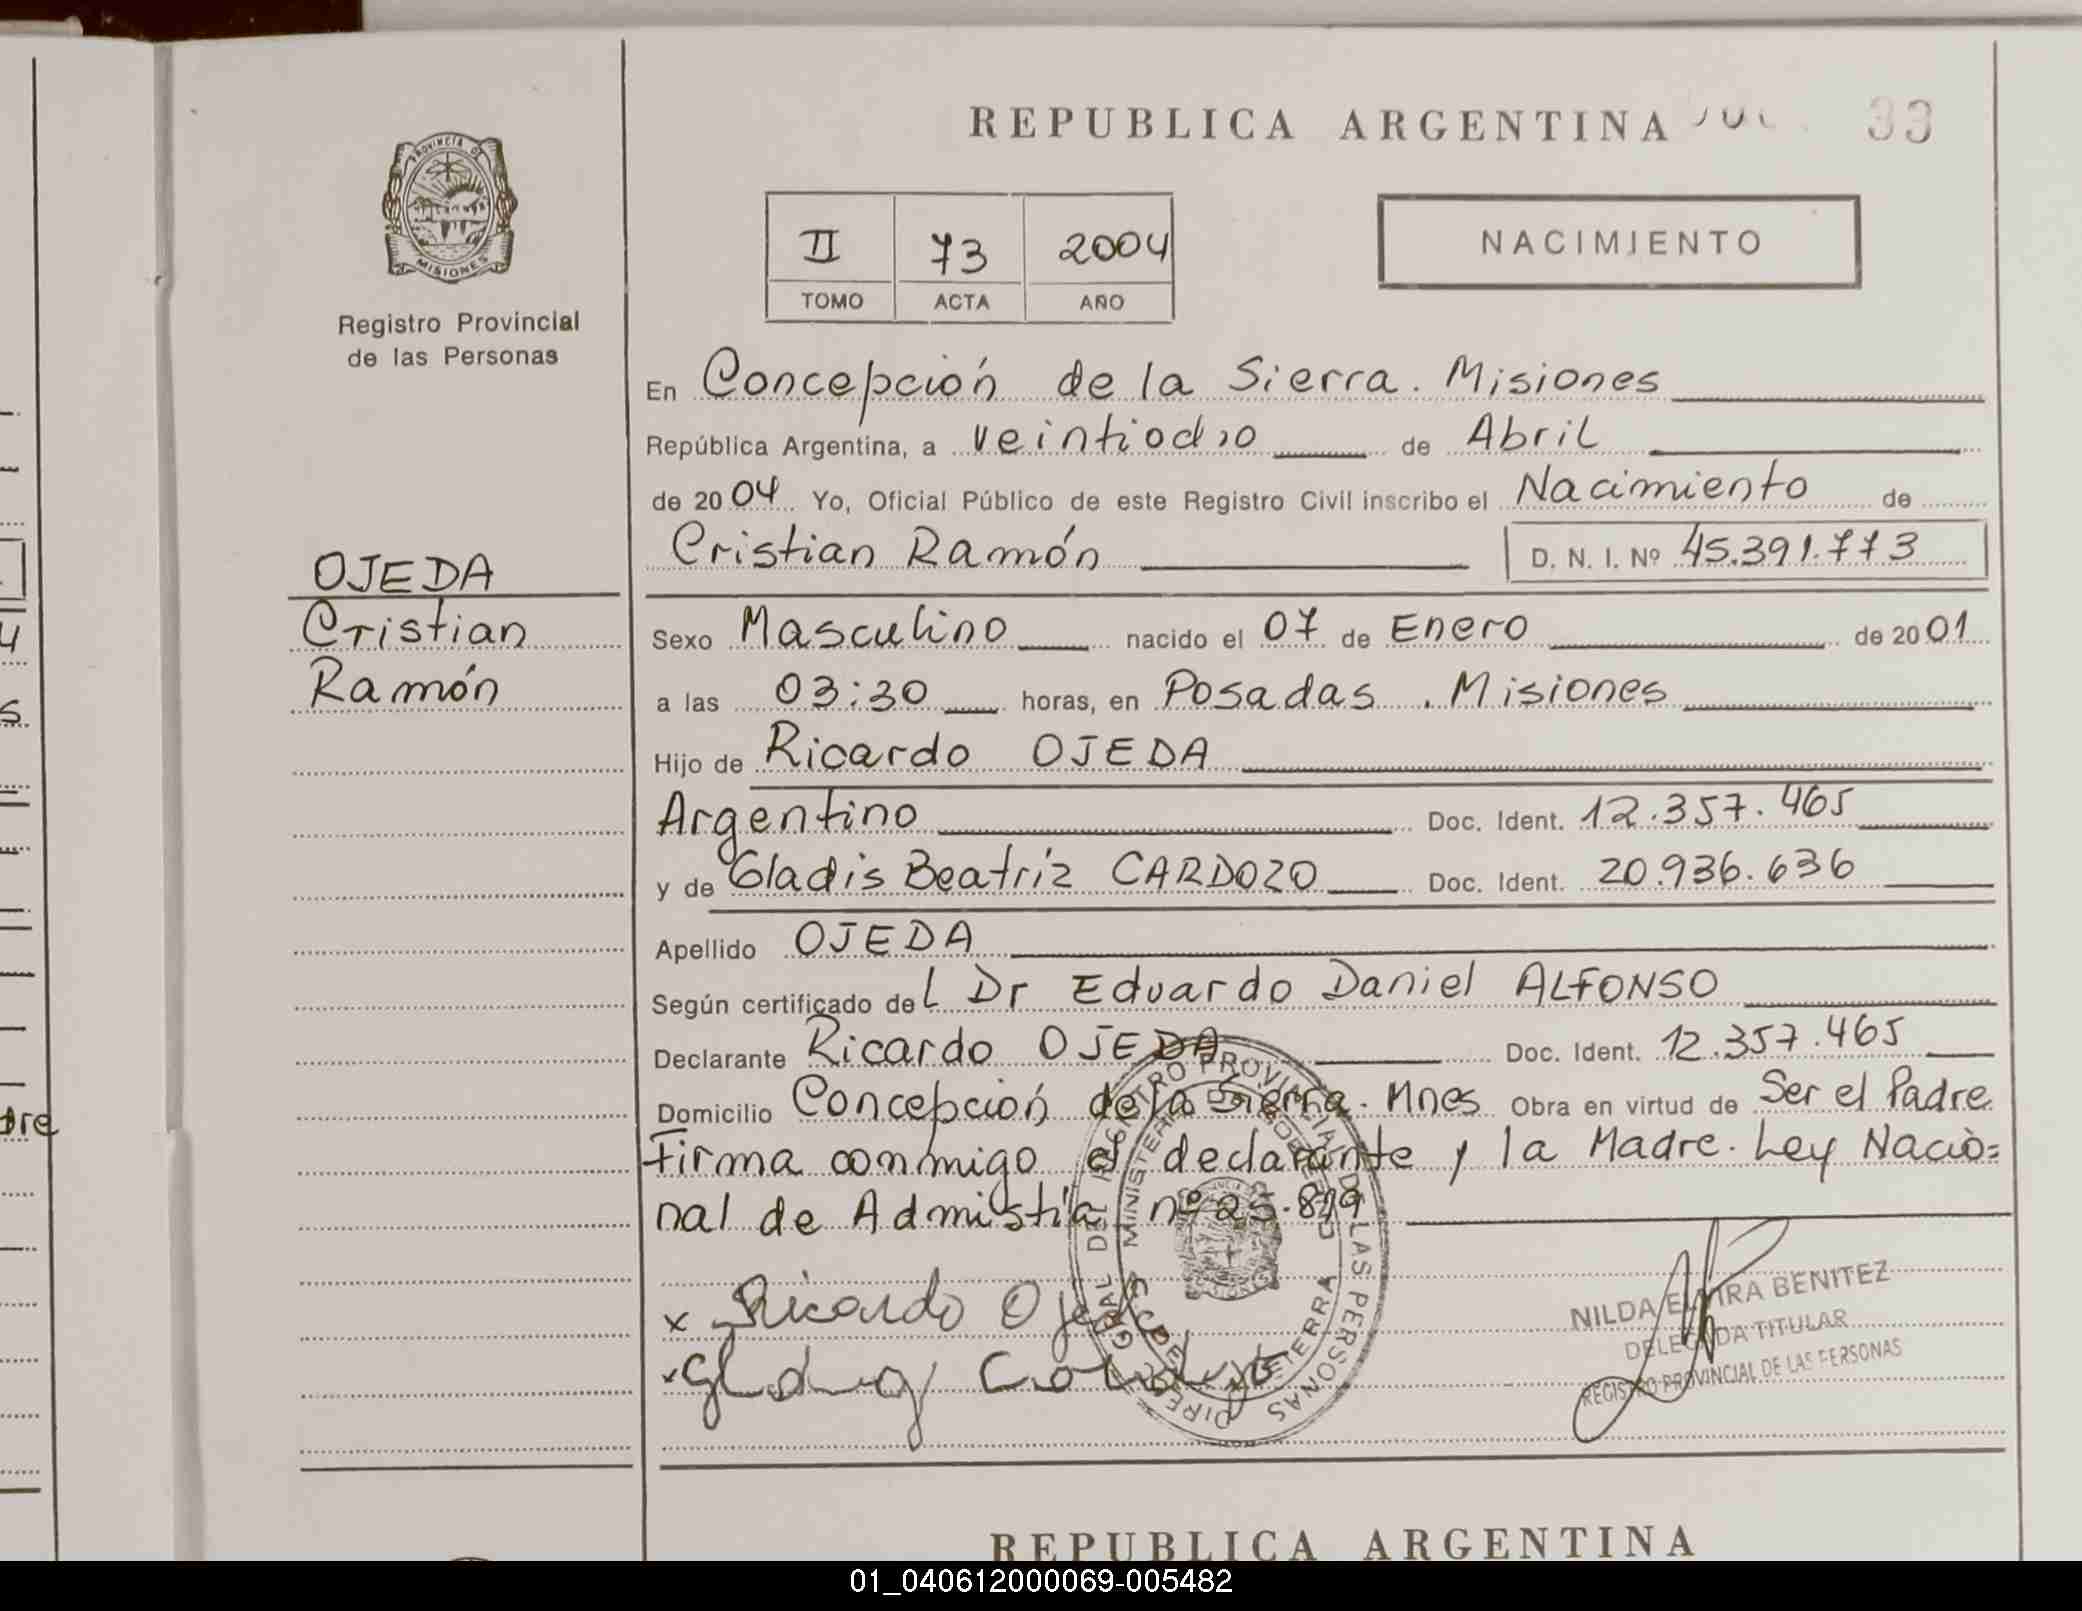 REPUBLICA ARGENTINA 33
PROVINCIA DE MISIONES
Registro Provincial
de las Personas
II 73 2004
TOMO ACTA AÑO
NACIMIENTO
En Concepción de la Sierra. Misiones
República Argentina, a veintiocho de Abril
de 2004 Yo, Oficial Público de este Registro Civil inscribo el Nacimiento de
Cristian Ramón D. N. I. Nº 45.391.773
OJEDA
Cristian
Ramón
Sexo Masculino nacido el 07 de Enero de 2001
a las 03:30 horas, en Posadas. Misiones
Hijo de Ricardo OJEDA
Argentino Doc. Ident. 12.357.465
y de Gladis Beatriz CARDOZO Doc. Ident. 20.936.636
Apellido OJEDA
Según certificado del Dr Eduardo Daniel ALFONSO
Declarante Ricardo OJEDA Doc. Ident. 12.357.465
Domicilio Concepción de la Sierra. Mnes Obra en virtud de Ser el Padre
Firma conmigo el declarante y la Madre. Ley Nacio=
nal de Admistía nº 25.819
x Ricardo Ojeda
x
NILDA ELVIRA BENITEZ
DELEGADA TITULAR
REGISTRO PROVINCIAL DE LAS PERSONAS
DIREC GRAL DEL REGISTRO PROVINCIAL DE LAS PERSONAS
REPUBLICA ARGENTINA
01_040612000069-005482